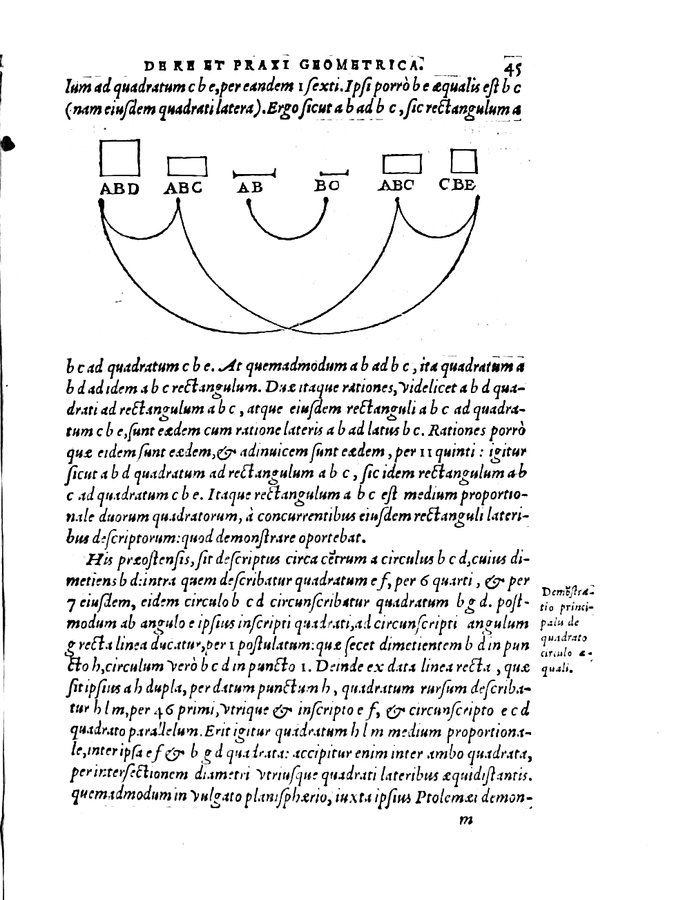 DE RE ET PRAXI GEOMETRICA. 45
lum ad quadratum c b e, per eandem 1 sexti. Ipsi porrò b e æqualis est b c
(nam eiusdem quadrati latera). Ergo sicut a b ad b c, sic rectangulum a
ABD ABC AB BC ABC CBE
b c ad quadratum c b e. At quemadmodum a b ad b c, ita quadratum a
b d ad idem a b c rectangulum. Duæ itaque rationes, videlicet a b d qua-
drati ad rectangulum a b c, atque eiusdem rectanguli a b c ad quadra-
tum c b e, sunt eædem cum ratione lateris a b ad latus b c. Rationes porrò
quæ eidem sunt eædem, & adinuicem sunt eædem, per 11 quinti : igitur
sicut a b d quadratum ad rectangulum a b c, sic idem rectangulum a b
c ad quadratum c b e. Itaque rectangulum a b c est medium proportio-
nale duorum quadratorum, à concurrentibus eiusdem rectanguli lateri-
bus descriptorum: quod demonstrare oportebat.
His præostensis, sit descriptus circa cẽtrum a circulus b c d, cuius di-
metiens b d: intra quem describatur quadratum e f, per 6 quarti, & per
7 eiusdem, eidem circulo b c d circunscribatur quadratum b g d. post-
modum ab angulo e ipsius inscripti quadrati, ad circunscripti angulum
g recta linea ducatur, per 1 postulatum: quæ secet dimetientem b d in pun
cto h, circulum verò b c d in puncto 1. Deinde ex data linea recta, quæ
sit ipsius a h dupla, per datum punctum h, quadratum rursum describa-
tur h l m, per 46 primi, vtrique & inscripto e f, & circunscripto e c d
quadrato parallelum. Erit igitur quadratum h l m medium proportiona-
le, inter ipsa e f & b g d quadrata: accipitur enim inter ambo quadrata,
per intersectionem diametri vtriusque quadrati lateribus æquidistantis.
quemadmodum in vulgato planisphærio, iuxta ipsius Ptolemæi demon-
m
Demõstra-
tio princi-
palis de
quadrato
circulo æ-
quali.